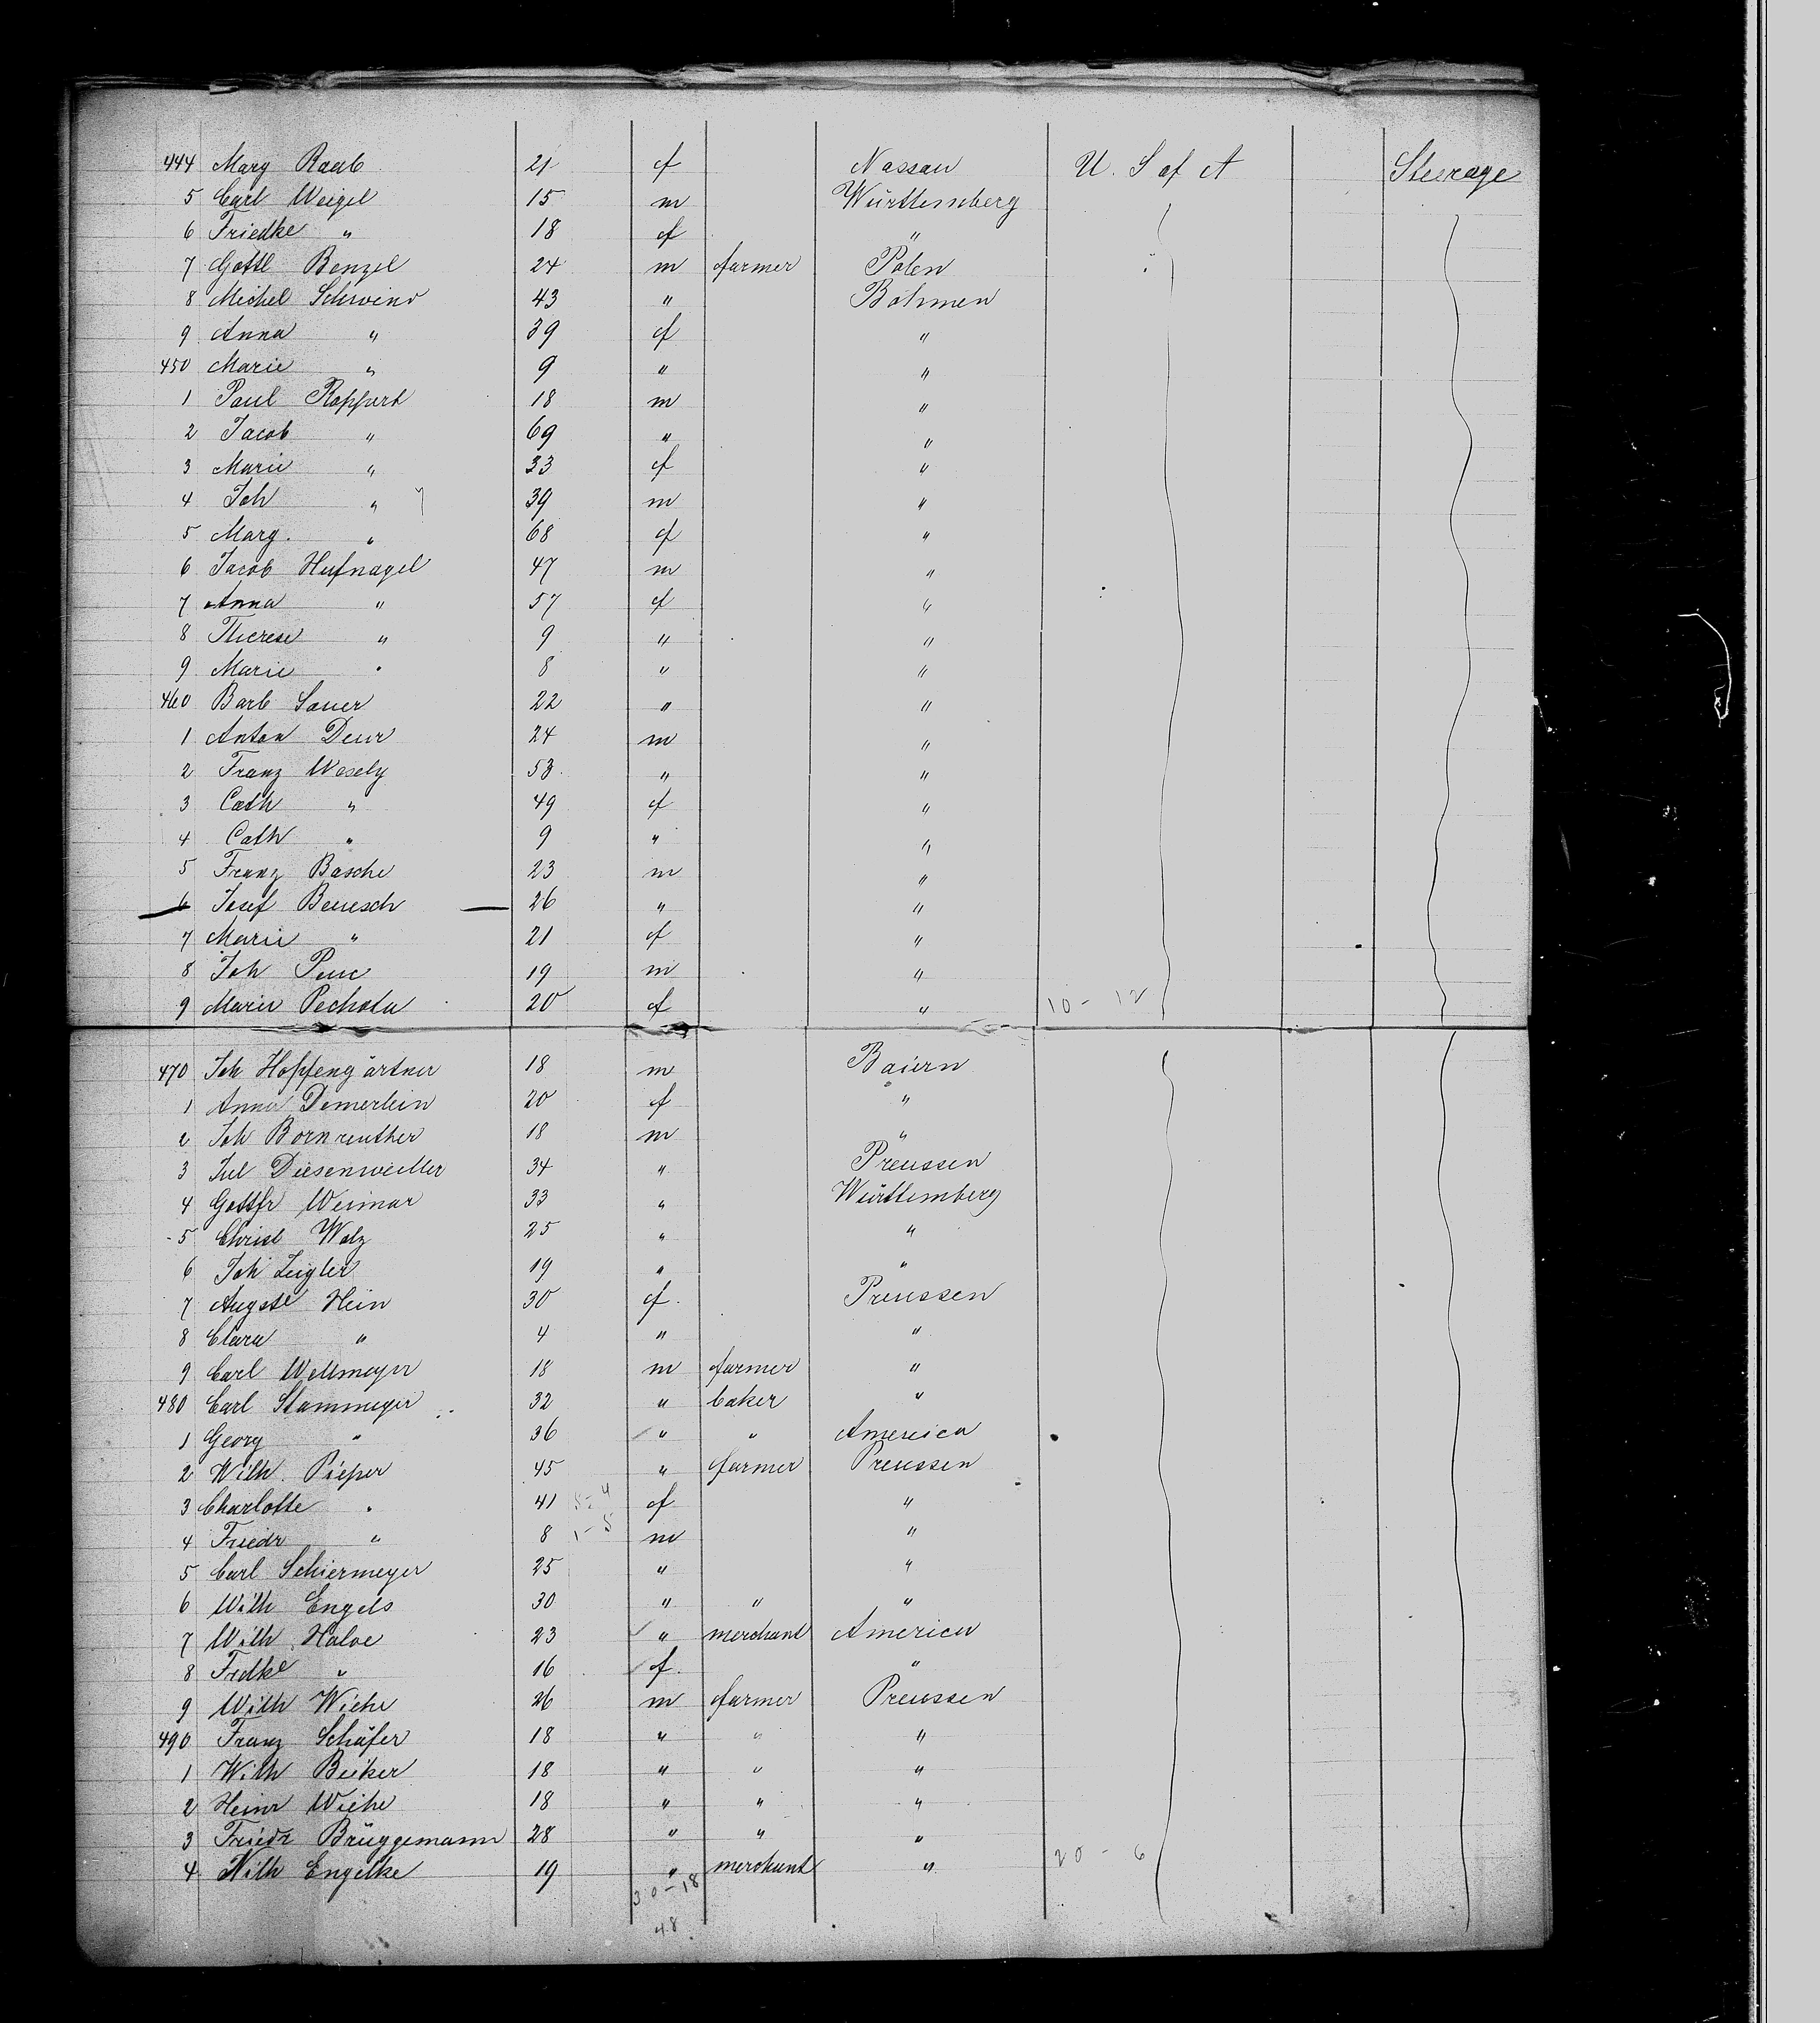 444 Marg Raab 21 f Nassau U. S of A Steerage
5 Carl Weigel 15 m Württemberg
6 Friedke " 18 f "
7 Gottl Benzel 24 m farmer Polen
8 Michel Schwind 43 " Böhmen
9 Anna " 39 f "
450 Marie " 9 " "
1 Paul Roppert 18 m "
2 Jacob " 69 " "
3 Marie " 33 f "
4 Joh " 39 m "
5 Marg. " 68 f "
6 Jacob Hufnagel 47 m "
7 Anna " 57 f "
8 Therese " 9 " "
9 Marie " 8 " "
460 Barb Sauer 22 " "
1 Anton Deur 24 m "
2 Franz Wesely 53 " "
3 Cath " 49 f "
4 Cath " 9 " "
5 Franz Basche 23 m "
6 Josef Benesch 26 " "
7 Marie " 21 f "
8 Joh Penc 19 m "
9 Marie Pechota 20 f " 10 - 12
470 Joh Hopfengärtner 18 m Baiern
1 Anna Demerlein 20 f "
2 Joh Bornreuther 18 m "
3 Jul Diesenweiller 34 " Preussen
4 Gottfr Weimar 33 " Württemberg
5 Christ Walz 25 " "
6 Joh Zeigler 19 " "
7 Auguste Hein 30 f. Preussen
8 Clara " 4 " "
9 Carl Wellmeyer 18 m farmer "
480 Carl Stammeyer 32 " baker "
1 Georg " 36 " " America
2 Wilh. Pieper 45 " farmer Preussen
3 Charlotte " 41 5-4 f "
4 Friedr " 8 1-5 m "
5 Carl Schiermeyer 25 " "
6 Wilh Engels 30 " " "
7 Wilh Halve 23 " merchant America
8 Fredke " 16 f. "
9 Wilh Wiehe 26 m farmer Preussen
490 Franz Schäfer 18 " " "
1 Wilh Beiker 18 " " "
2 Heinr Wiehe 18 " " "
3 Friedr Brüggemann 28 " " "
4 Wilh Engelke 19 " merchant " 20 - 6
30-18
48